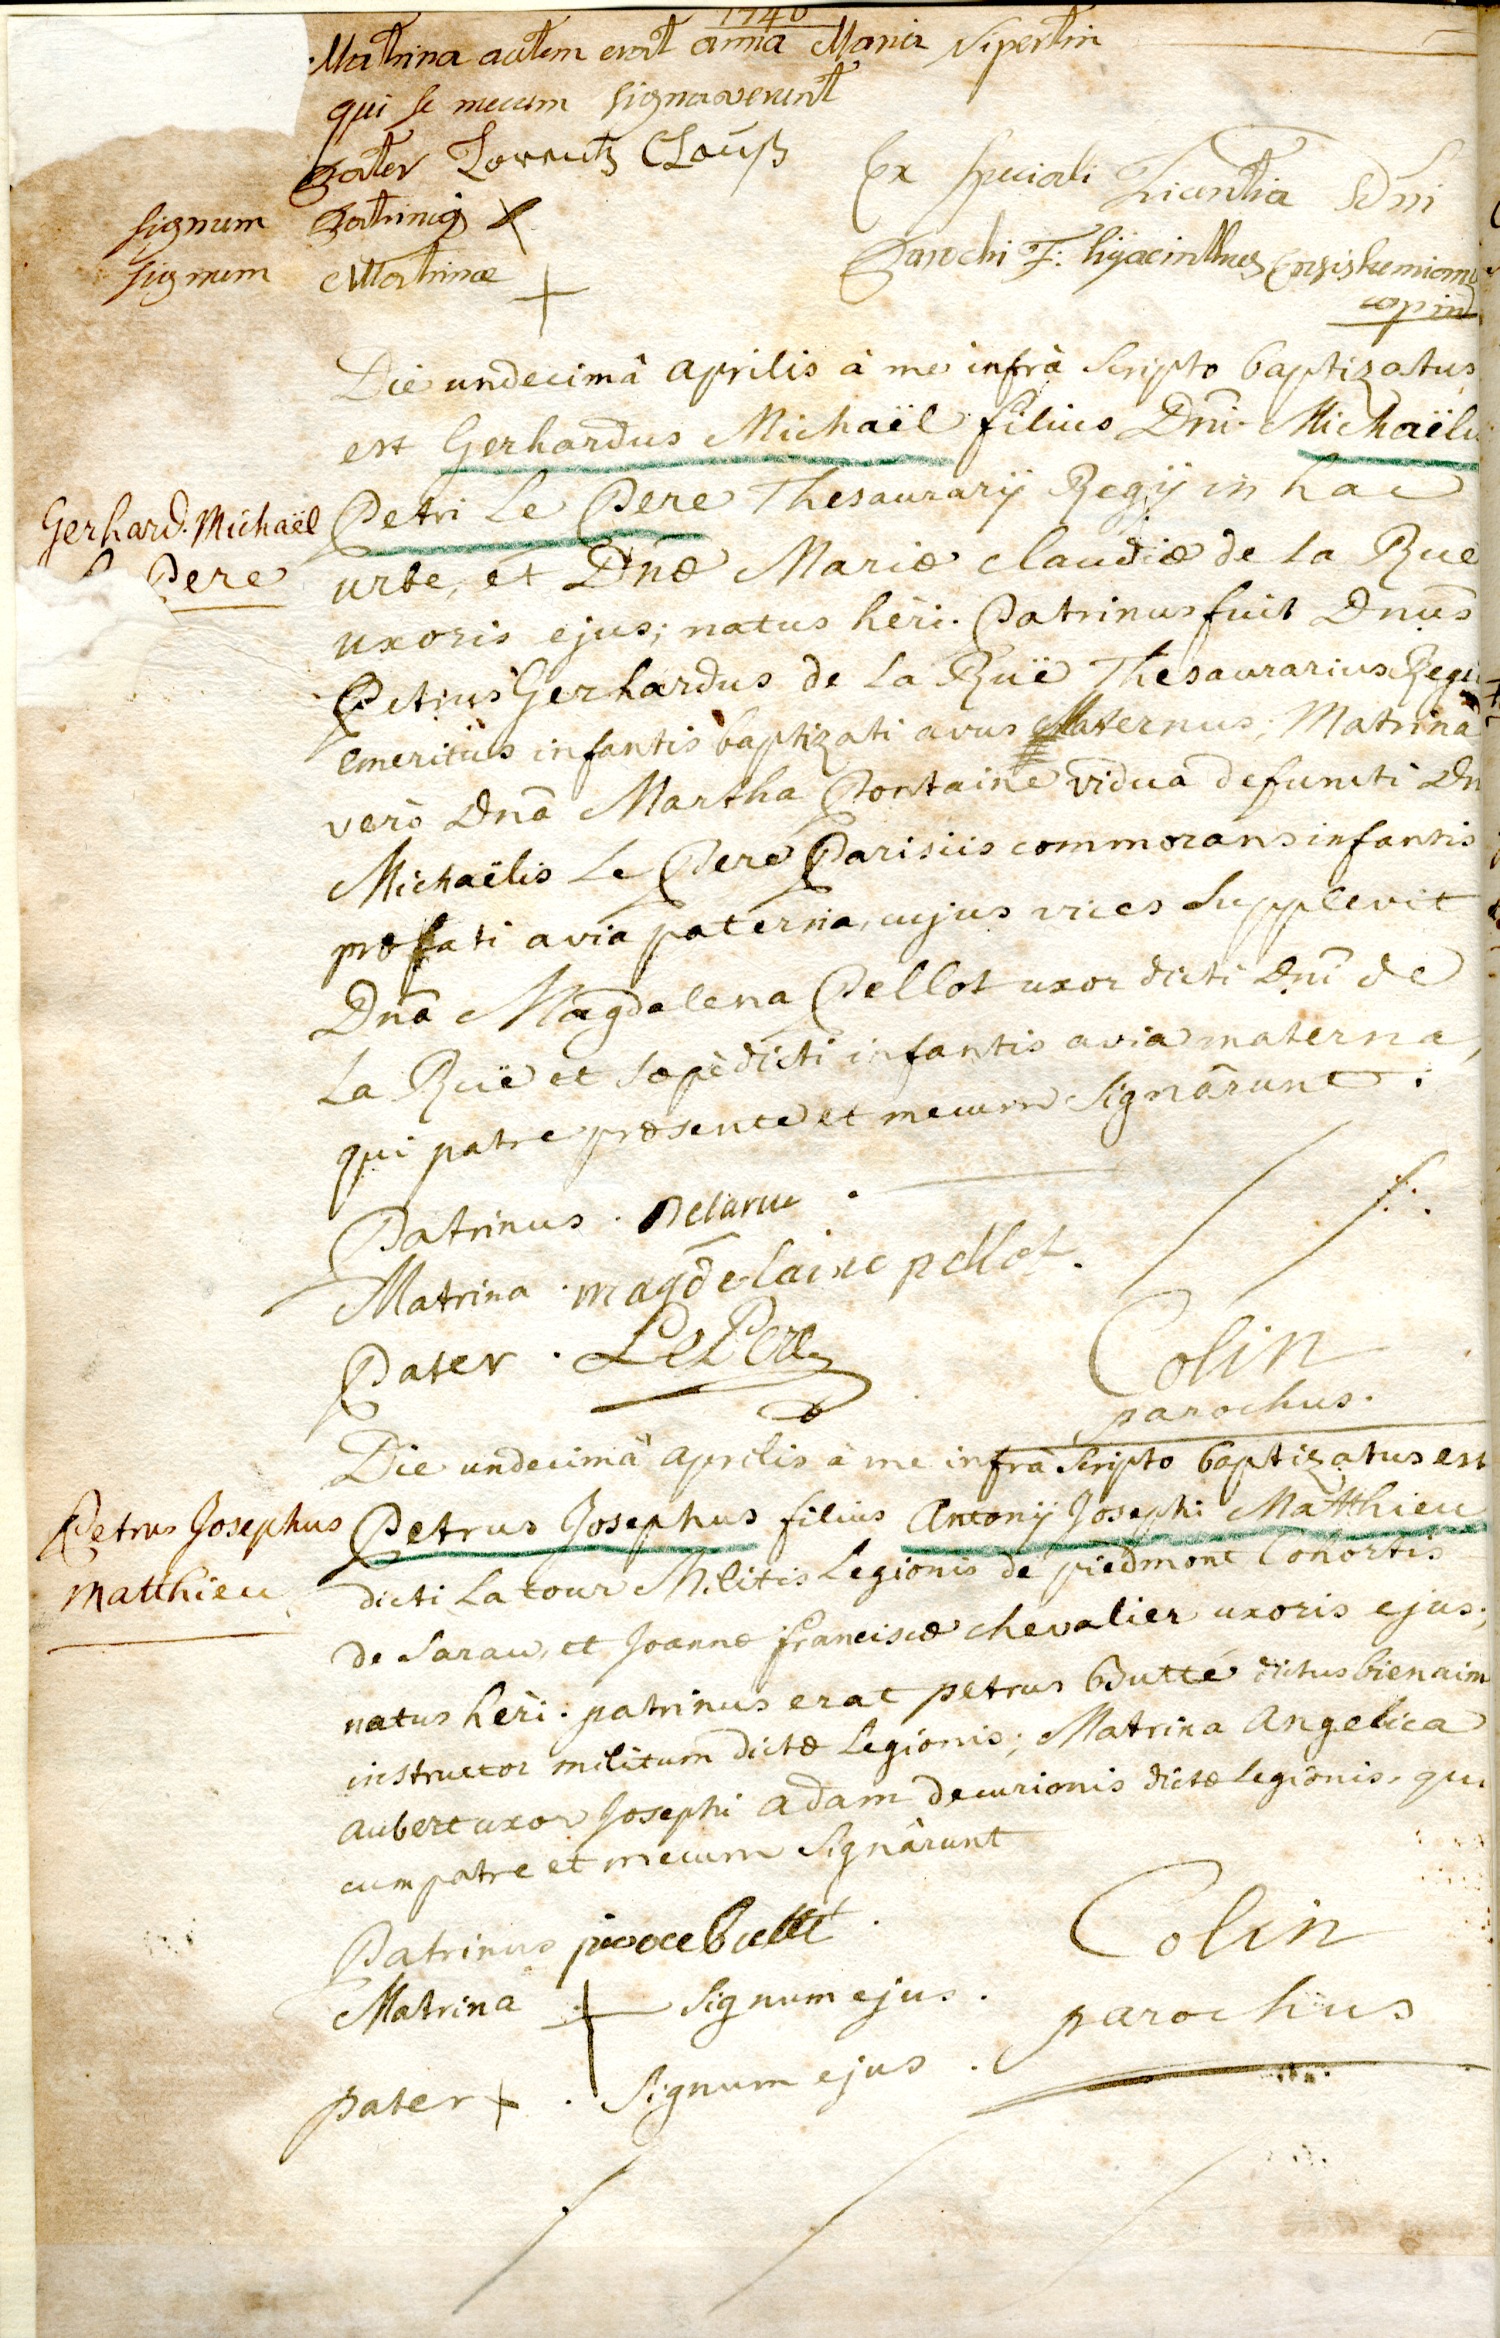 1740
Matrina autem erat anna Maria Sipertin
qui se mecum signaverunt
pater Lorentz Clauß
Ex speciali Licentia Dni
signum patrini X
Parochi F: hyacinthus
signum Matrinæ +
Die undecimâ aprilis à me infrà scripto baptizatus
est Gerhardus Michaël filius Dni Michaëlis
Gerhard. Michaël
Petri Le Pere Thesaurarÿ Regÿ in hac
Pere
urbe, et Dnæ Mariæ Claudiæ de la Rue
uxoris ejus; natus heri. Patrinus fuit Dnus
Petrus Gerhardus de La Ruë Thesaurarius Regi
emeritus infantis baptizati avus Maternus; Matrina
verò Dnã Martha Fontaine vidua defuncti Dn
Michaëlis Le Pere Parisiis commorans infantis
præfati avia paterna, cujus vices supplevit
Dnã Magdalena Pellot uxor dicti Dni de
La Ruë et sæpèdicti infantis avia materna,
qui patre præsente et mecum signârunt.
Patrinus. Delarue
Matrina. magdelaine pellot.
Pater. LePere
Colin
parochus.
Die undecimâ aprilis à me infrà scripto baptizatus est
Petrus Josephus
Petrus Josephus filius Antonÿ Josephi Matthieu
Matthieu
dicti La tour Militis Legionis de piedmont Cohortis
de Sarau, et Joannæ franciscæ chevalier uxoris ejus;
natus heri. patrinus erat petrus Butté dictus bienaim
instructor militum dictæ Legionis; Matrina Angelica
aubert uxor Josephi adam decurionis dictæ legionis. qui
cum patre et mecum signârunt
Patrinus
Colin
Matrina + signum ejus.
parochus
pater + . signum ejus.